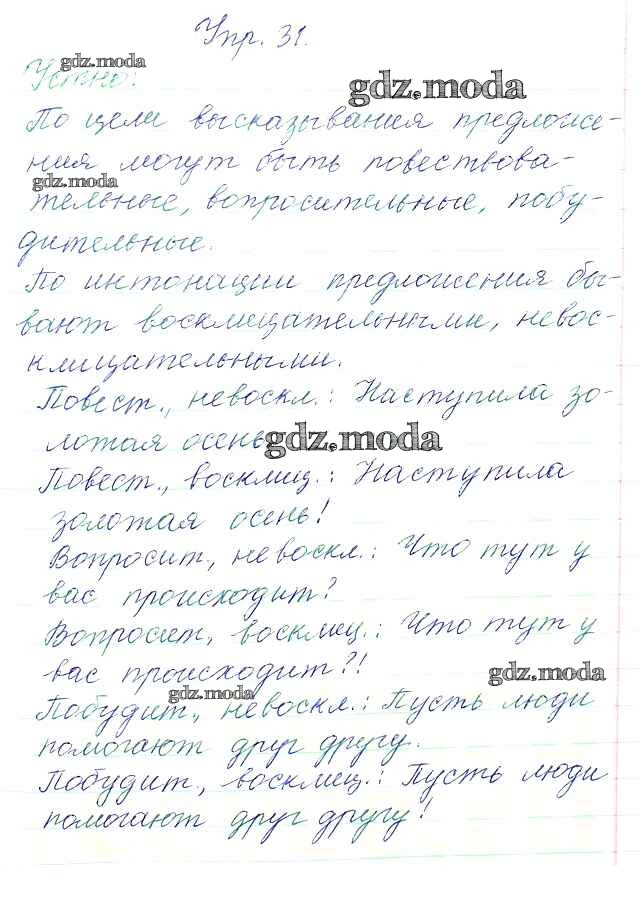 Упр. 31.
gdz.moda
Устно:
gdz.moda
По цели высказывания предложе-
ния могут быть повествова-
gdz.moda
тельные, вопросительные, побу-
дительные.
По интонации предложения бы-
вают восклицательными, невос-
клицательными.
Повест., невоскл.: Наступила зо-
лотая осень.
gdz.moda
Повест., восклиц.: Наступила
золотая осень!
Вопросит., невоскл.: Что тут у
вас происходит?
Вопросит., восклиц.: Что тут у
вас происходит?!
gdz.moda
gdz.moda
Побудит., невоскл.: Пусть люди
помогают друг другу.
Побудит., восклиц.: Пусть люди
помогают друг другу!